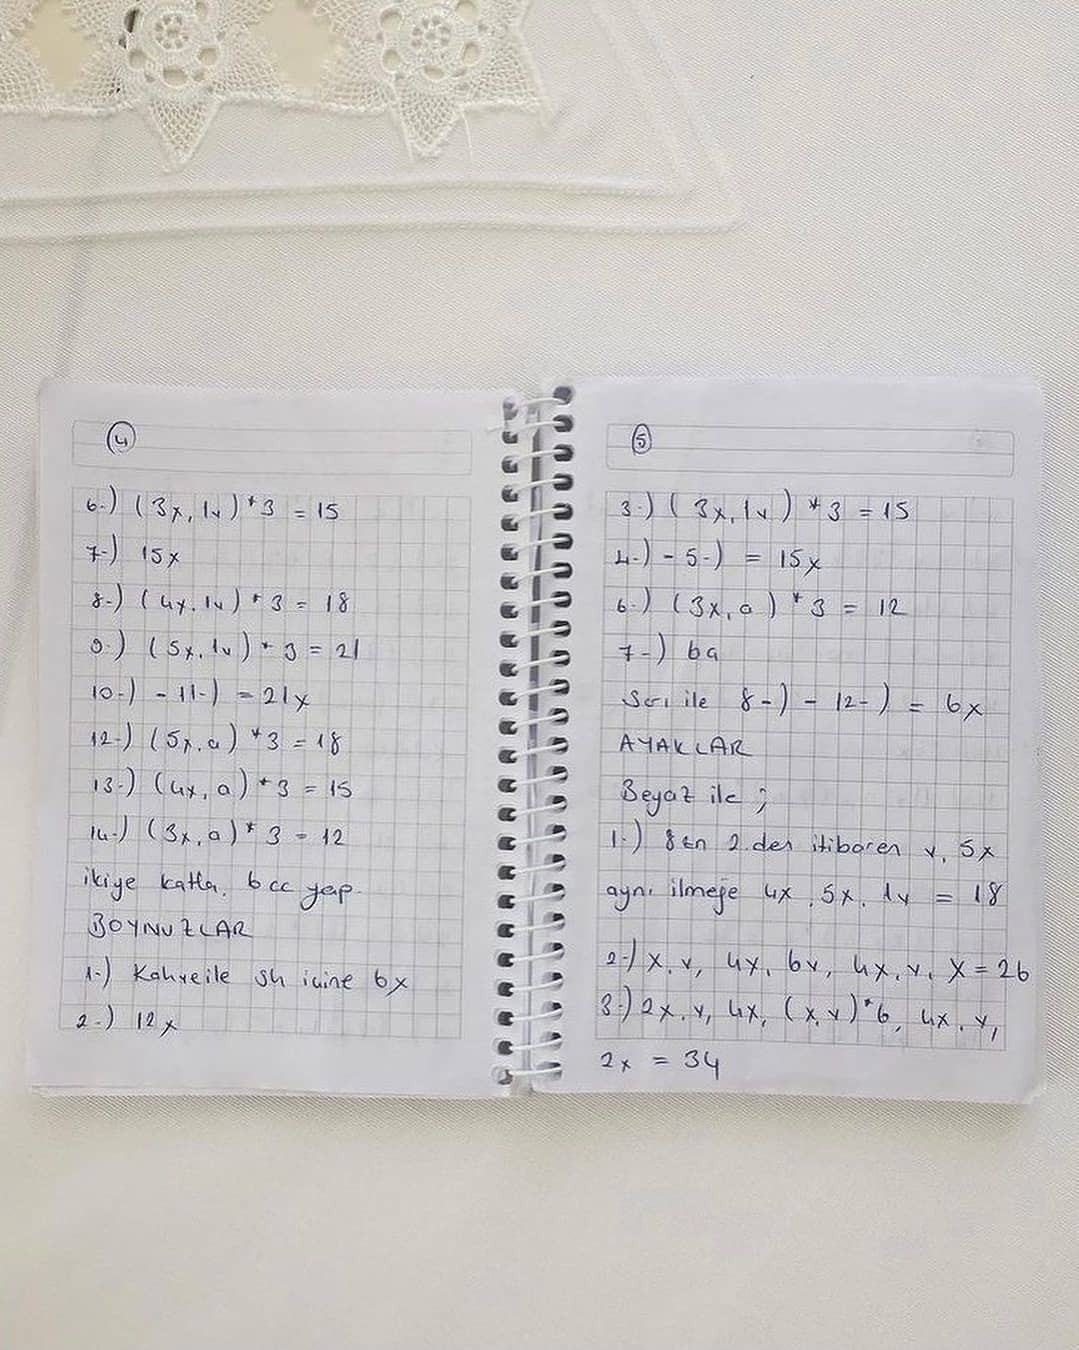 4
6-) (3x, 1v) *3 = 15
7-) 15x
8-) (4x, 1v) *3 = 18
9-) (5x, 1v) *3 = 21
10-) - 11-) = 21x
12-) (5x, a) *3 = 18
13-) (4x, a) *3 = 15
14-) (3x, a) *3 = 12
ikiye katla. 6cc yap.
BOYNUZLAR
1-) Kahve ile sh içine 6x
2-) 12x
5
3-) (3x, 1v) *3 = 15
4-) - 5-) = 15x
6-) (3x, a) *3 = 12
7-) 6a
Sarı ile 8-) - 12-) = 6x
AYAKLAR
Beyaz ile ;
1-) 8 zn 2.den itibaren v, 5x
aynı ilmeğe 4x, 5x, 1v = 18
2-) x, v, 4x, 6v, 4x, v, x = 26
3-) 2x, v, 4x, (x, v) *6, 4x, v,
2x = 34